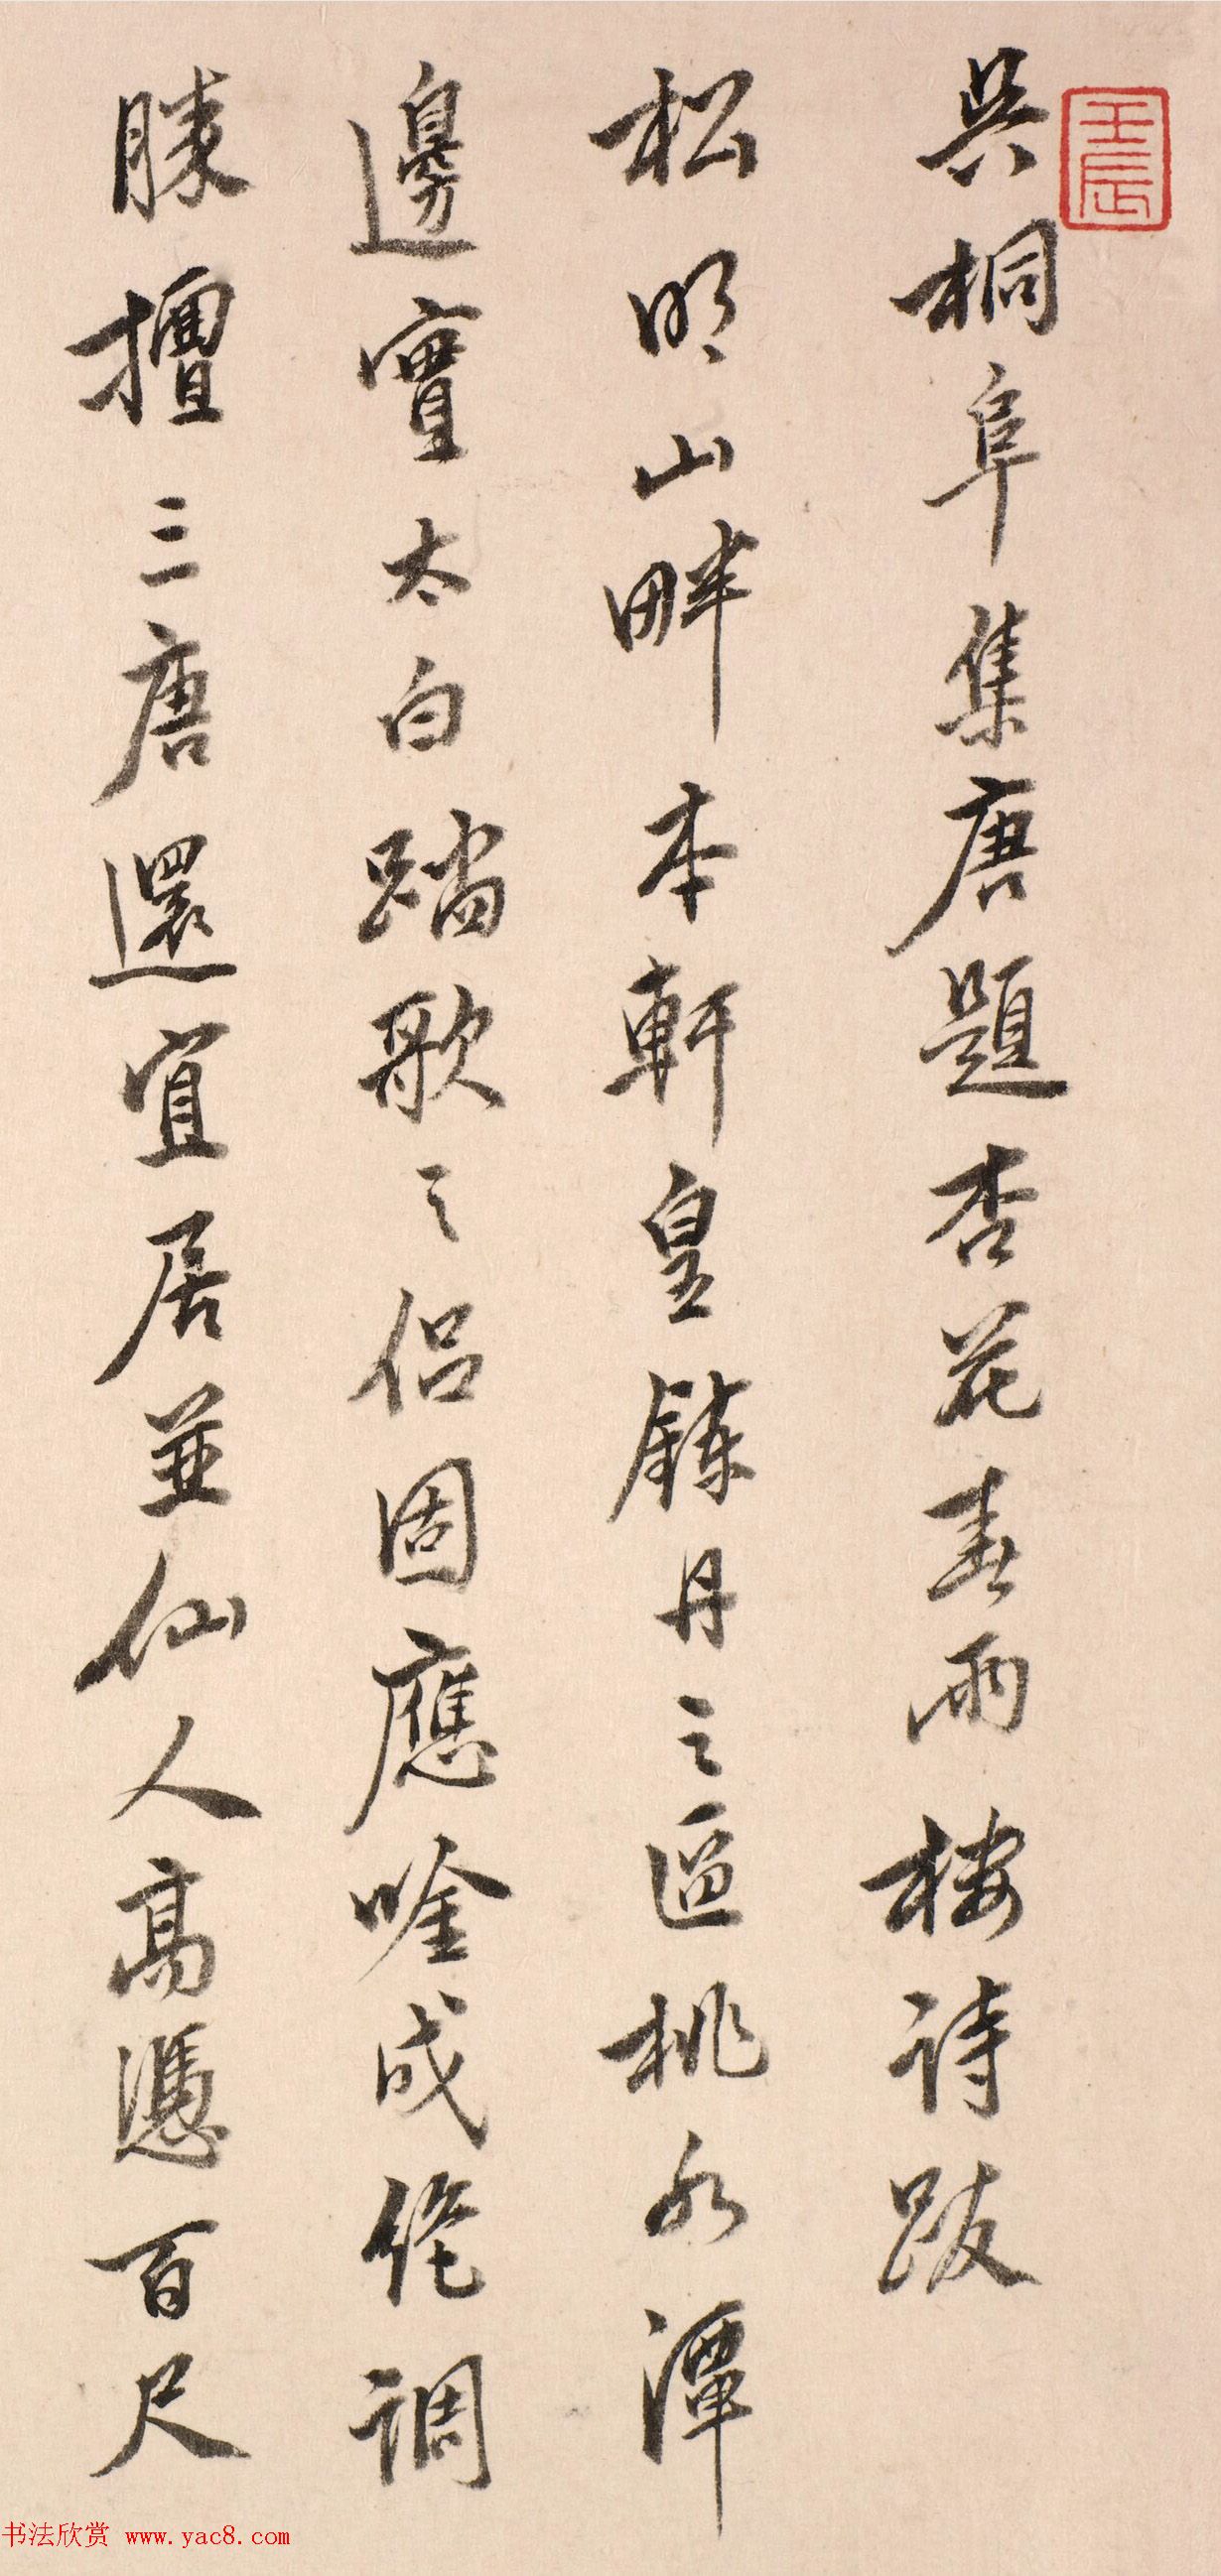 壬辰
吳桐阜集唐題杏花春雨樓詩跋
松明山畔本軒皇鍊丹之區桃水潭
邊實太白踏歌之侣固應唫成絕調
勝擅三唐還宜居並仙人高憑百尺
书法欣赏 www.yac8.com